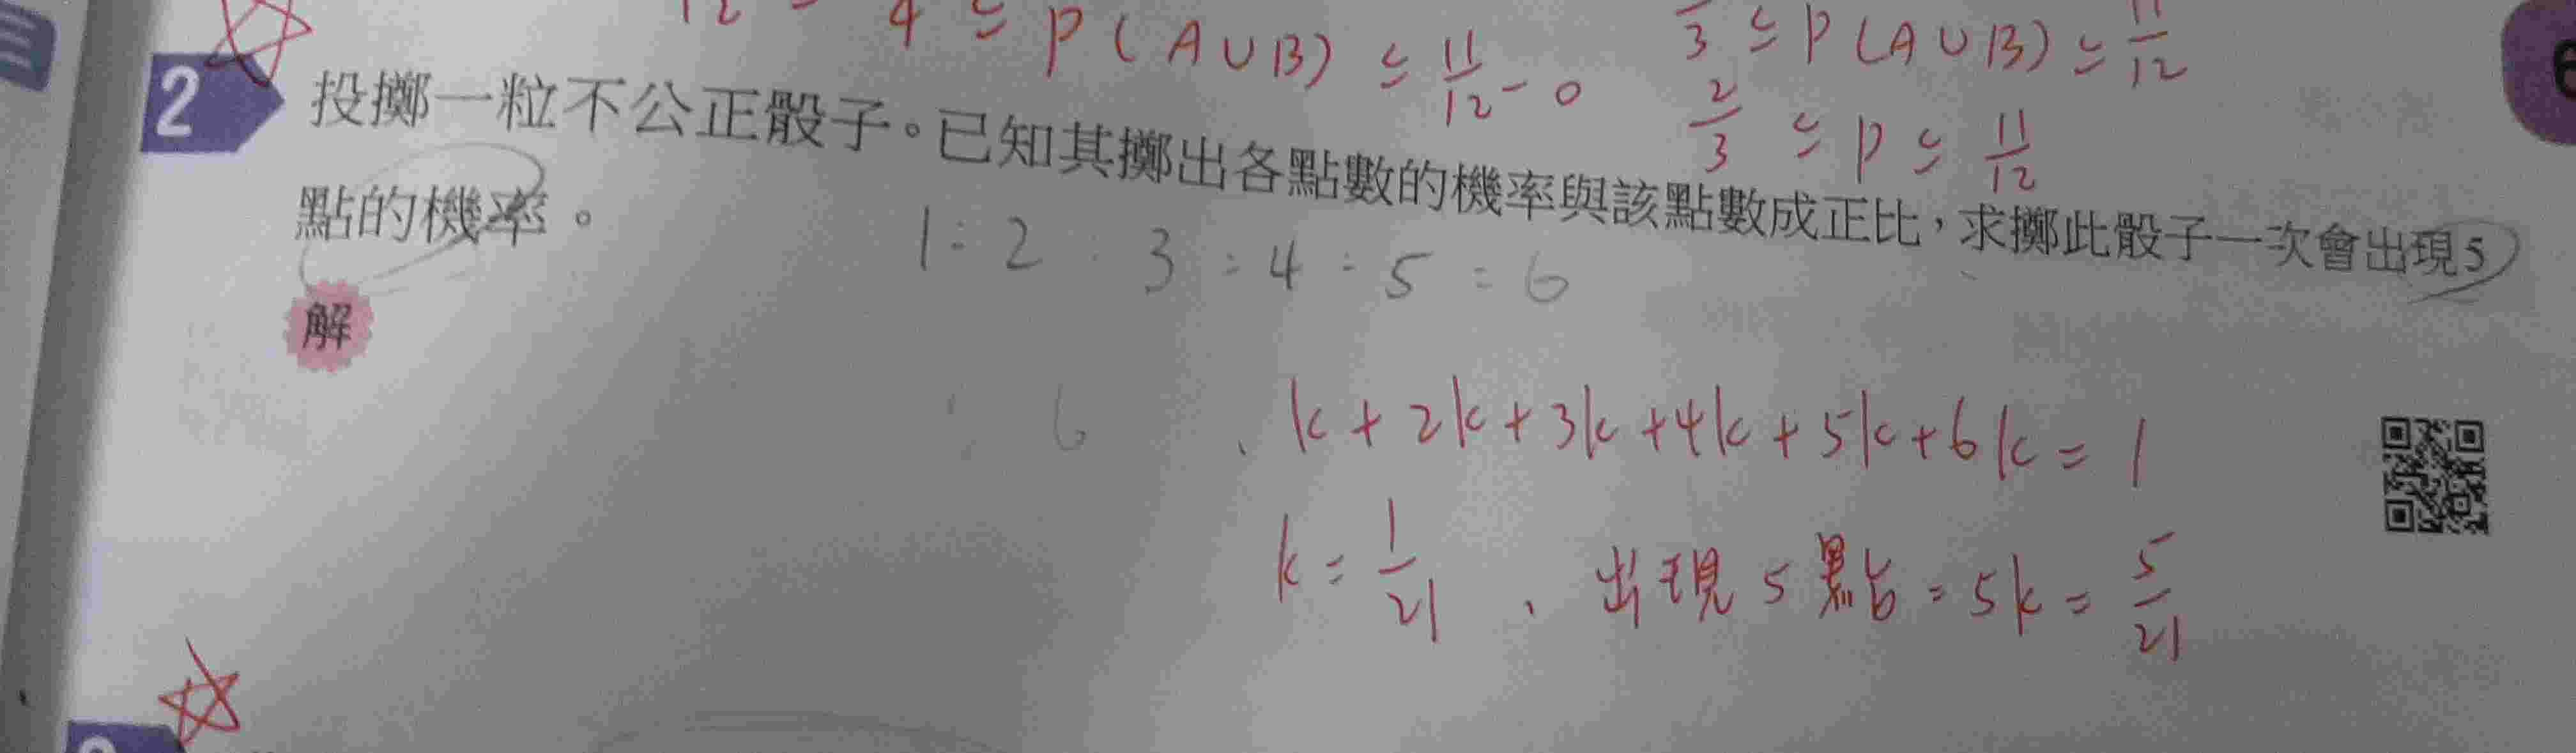 4 ≤ P(A∪B) ≤ 11/12 - 0
3 ≤ P(A∪B) ≤ 11/12
2/3 ≤ P ≤ 11/12
2 投擲一粒不公正骰子。已知其擲出各點數的機率與該點數成正比，求擲此骰子一次會出現5
點的機率。
1:2 3:4:5:6
解
6
k+2k+3k+4k+5k+6k=1
k=1/21、出現5點=5k=5/21